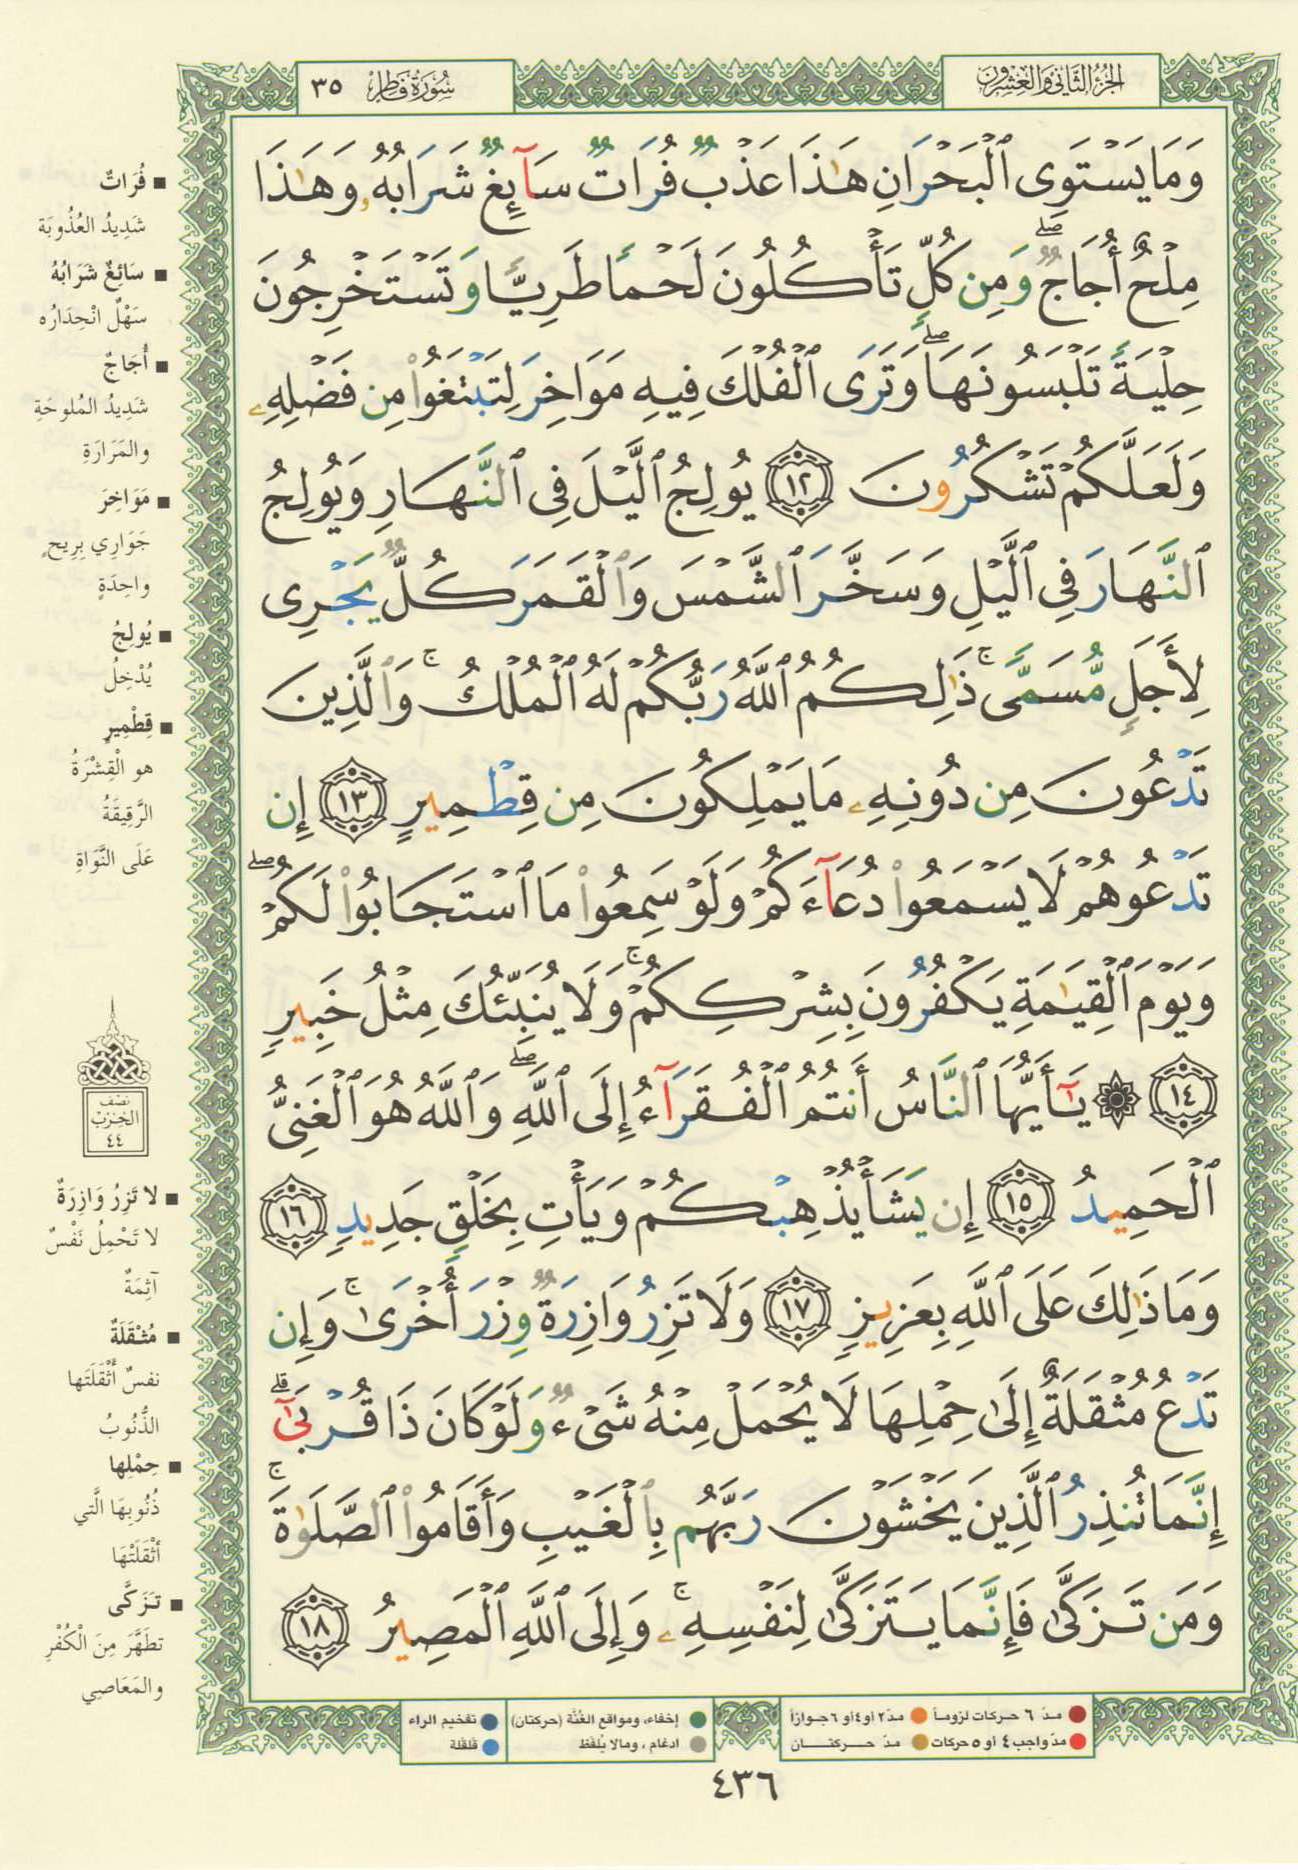 الجزء الثاني والعشرون
سورة فاطر ٣٥
وَمَا يَسْتَوِى ٱلْبَحْرَانِ هَٰذَا عَذْبٌ فُرَاتٌ سَآئِغٌ شَرَابُهُۥ وَهَٰذَا
مِلْحٌ أُجَاجٌ ۖ وَمِن كُلٍّ تَأْكُلُونَ لَحْمًا طَرِيًّا وَتَسْتَخْرِجُونَ
حِلْيَةً تَلْبَسُونَهَا ۖ وَتَرَى ٱلْفُلْكَ فِيهِ مَوَاخِرَ لِتَبْتَغُوا۟ مِن فَضْلِهِۦ
وَلَعَلَّكُمْ تَشْكُرُونَ ١٢ يُولِجُ ٱلَّيْلَ فِى ٱلنَّهَارِ وَيُولِجُ
ٱلنَّهَارَ فِى ٱلَّيْلِ وَسَخَّرَ ٱلشَّمْسَ وَٱلْقَمَرَ كُلٌّ يَجْرِى
لِأَجَلٍ مُّسَمًّى ۚ ذَٰلِكُمُ ٱللَّهُ رَبُّكُمْ لَهُ ٱلْمُلْكُ ۚ وَٱلَّذِينَ
تَدْعُونَ مِن دُونِهِۦ مَا يَمْلِكُونَ مِن قِطْمِيرٍ ١٣ إِن
تَدْعُوهُمْ لَا يَسْمَعُوا۟ دُعَآءَكُمْ وَلَوْ سَمِعُوا۟ مَا ٱسْتَجَابُوا۟ لَكُمْ ۖ
وَيَوْمَ ٱلْقِيَٰمَةِ يَكْفُرُونَ بِشِرْكِكُمْ ۚ وَلَا يُنَبِّئُكَ مِثْلُ خَبِيرٍ
١٤ ۞ يَٰٓأَيُّهَا ٱلنَّاسُ أَنتُمُ ٱلْفُقَرَآءُ إِلَى ٱللَّهِ ۖ وَٱللَّهُ هُوَ ٱلْغَنِىُّ
ٱلْحَمِيدُ ١٥ إِن يَشَأْ يُذْهِبْكُمْ وَيَأْتِ بِخَلْقٍ جَدِيدٍ ١٦
وَمَا ذَٰلِكَ عَلَى ٱللَّهِ بِعَزِيزٍ ١٧ وَلَا تَزِرُ وَازِرَةٌ وِزْرَ أُخْرَىٰ ۚ وَإِن
تَدْعُ مُثْقَلَةٌ إِلَىٰ حِمْلِهَا لَا يُحْمَلْ مِنْهُ شَىْءٌ وَلَوْ كَانَ ذَا قُرْبَىٰٓ ۗ
إِنَّمَا تُنذِرُ ٱلَّذِينَ يَخْشَوْنَ رَبَّهُم بِٱلْغَيْبِ وَأَقَامُوا۟ ٱلصَّلَوٰةَ ۚ
وَمَن تَزَكَّىٰ فَإِنَّمَا يَتَزَكَّىٰ لِنَفْسِهِۦ ۚ وَإِلَى ٱللَّهِ ٱلْمَصِيرُ ١٨
■ فُرَاتٌ
شَدِيدُ العُذُوبَة
■ سَائِغٌ شَرَابُهُ
سَهْلٌ انْحِدَارُه
■ أُجَاجٌ
شَدِيدُ المُلوحَةِ
والمَرَارَةِ
■ مَوَاخِرَ
جَوَارِي بِرِيحٍ
واحِدَةٍ
■ يُولِجُ
يُدْخِلُ
■ قِطْمِيرٍ
هو الْقِشْرَةُ
الرَّقِيقَةُ
عَلَى النَّوَاةِ
نصف
الحزب
٤٤
■ لا تَزِرُ وَازِرَةٌ
لا تَحْمِلُ نَفْسٌ
آثِمَةٌ
■ مُثْقَلَةٌ
نفسٌ أَثْقَلَتْها
الذُّنُوبُ
■ حِمْلِها
ذُنُوبِهَا الَّتي
أَثْقَلَتْهَا
■ تَزَكَّى
تطَهَّرَ مِنَ الْكُفْرِ
والمَعَاصِي
مدّ ٦ حركات لزوماً
مدّ ٢ أو ٤ أو ٦ جوازاً
مدّ واجب ٤ أو ٥ حركات
مدّ حركتان
إخفاء، ومواقع الغُنَّة (حركتان)
ادغام، ومالا يُلفَظ
تفخيم الراء
قلقلة
٤٣٦